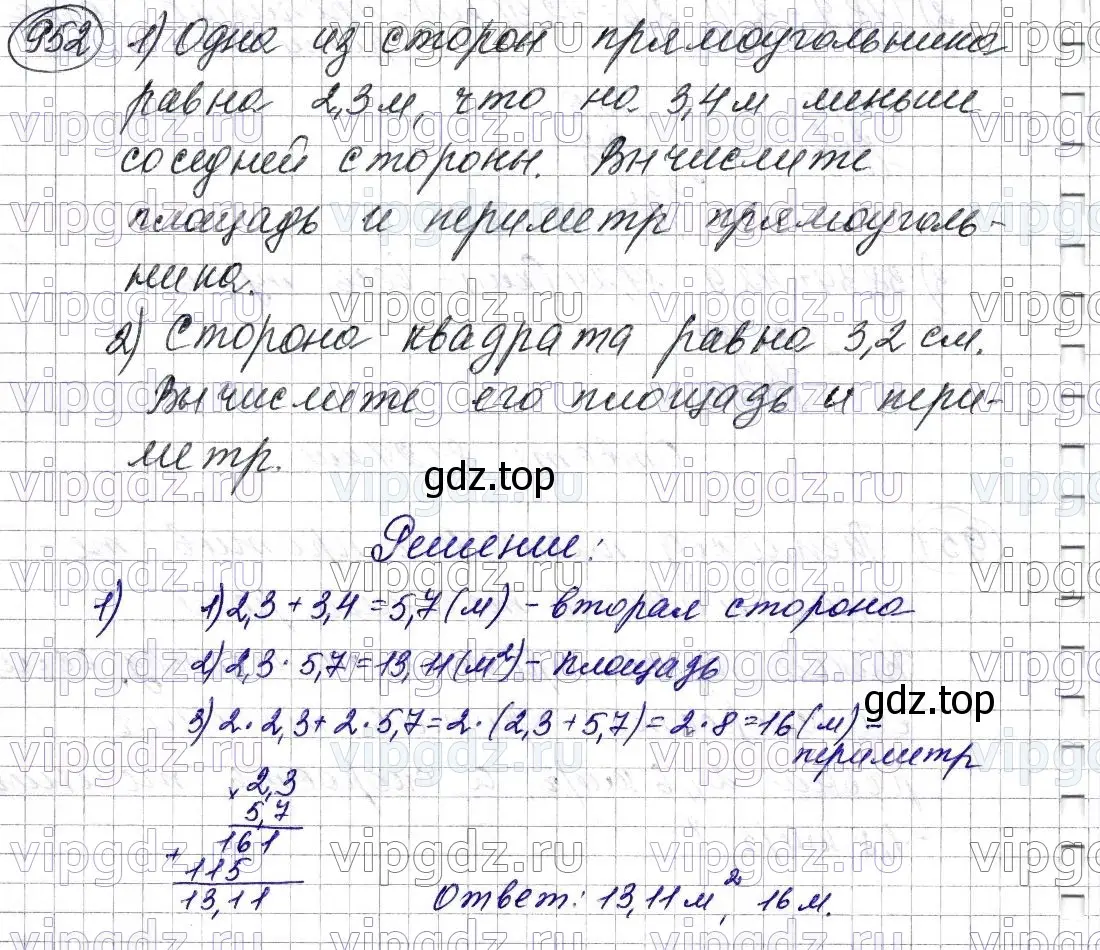 952 1) Одна из сторон прямоугольника
равна 2,3 м, что на 3,4 м меньше
соседней стороны. Вычислите
площадь и периметр прямоуголь-
ника.
2) Сторона квадрата равна 3,2 см.
Вычислите его площадь и пери-
метр.
gdz.top
Решение:
1) 1) 2,3 + 3,4 = 5,7 (м) - вторая сторона
2) 2,3 · 5,7 = 13,11 (м²) - площадь
gdz.top
3) 2 · 2,3 + 2 · 5,7 = 2 · (2,3 + 5,7) = 2 · 8 = 16 (м) =
периметр
× 2,3
5,7
161
+ 115
13,11
Ответ: 13,11 м², 16 м.
vipgdz.ru